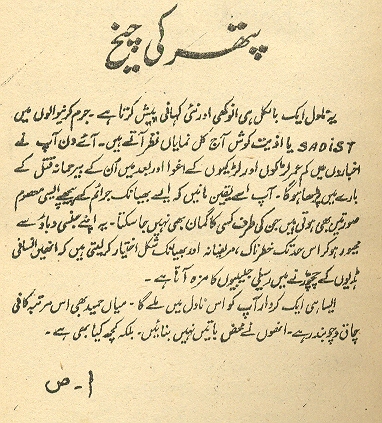 پتھر کی چیخ
یہ ناول ایک بالکل ہی انوکھی اور نئی کہانی پیش کرتا ہے۔ جرم کرنیوالوں میں
SADIST یا اذیت کوش آج کل نمایاں نظر آتے ہیں۔ آئے دن آپ نے
اخباروں میں کم عمر لڑکوں اور لڑکیوں کے اغوا اور بعد میں اُن کے بیرحمانہ قتل کے
بارے میں پڑھا ہوگا۔ آپ اسے یقین مانیں کہ ایسے بھیانک جرائم کے پیچھے ایسی معصوم
صورتیں بھی ہوتی ہیں جن کی طرف کسی کا گمان بھی نہیں جا سکتا۔ یہ اپنے جنسی دباؤ سے
مجبور ہو کر اس حد تک خطرناک، مریضانہ اور بھیانک شکل اختیار کر لیتی ہیں کہ انھیں انسانی
ہڈیوں کے چچوڑنے میں رسیلی جلیبیوں کا مزہ آتا ہے۔
ایسا ہی ایک کردار آپ کو اس ناول میں ملے گا۔ میاں حمید بھی اس مرتبہ کافی
چاق و چوبند رہے۔ انھوں نے محض باتیں نہیں بنائیں۔ بلکہ کچھ کیا بھی ہے۔
ا۔ ص